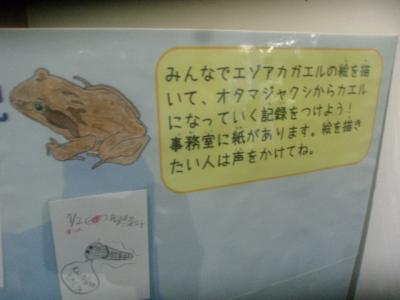 みんなでエゾアカガエルの絵を描
いて、オタマジャクシからカエル
になっていく記録をつけよう！
事務室に紙があります。絵を描き
たい人は声をかけてね。